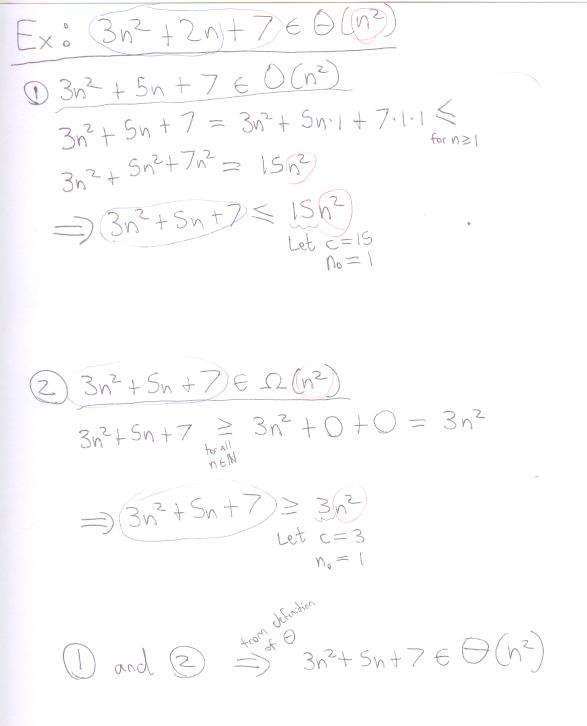 Ex: 3n² + 2n + 7 ∈ Θ(n²)
① 3n² + 5n + 7 ∈ O(n²)
3n² + 5n + 7 = 3n² + 5n·1 + 7·1·1 ≤
for n≥1
3n² + 5n² + 7n² = 15n²
⟹ 3n² + 5n + 7 ≤ 15n²
Let c = 15
n₀ = 1
② 3n² + 5n + 7 ∈ Ω(n²)
3n² + 5n + 7 ≥ 3n² + 0 + 0 = 3n²
for all
n∈ℕ
⟹ 3n² + 5n + 7 ≥ 3n²
Let c = 3
n₀ = 1
from definition
of Θ
① and ② ⟹ 3n² + 5n + 7 ∈ Θ(n²)